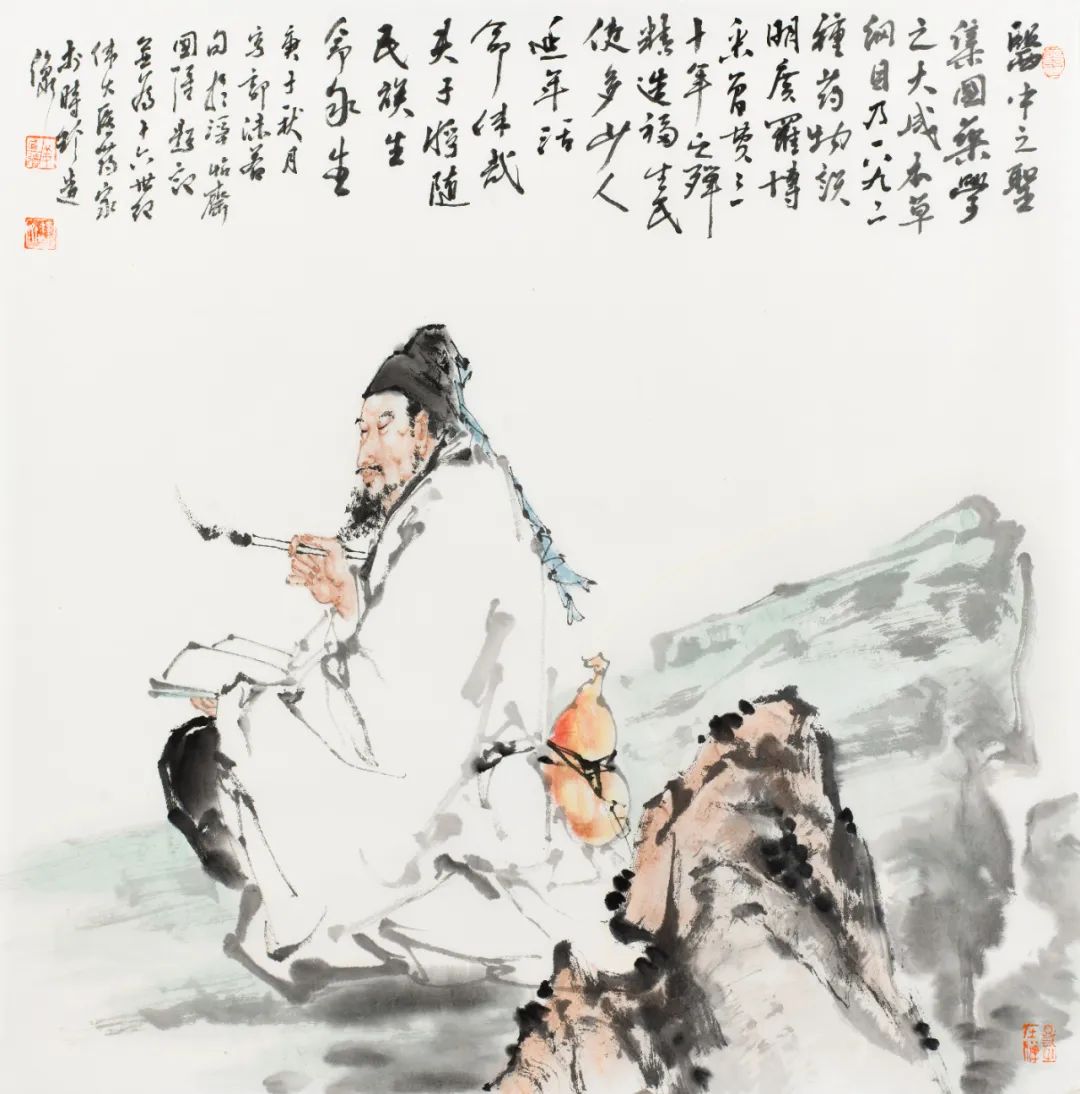 醫中之聖
集國藥學
之大成本草
綱目乃一八九二
種药物說
明廣羅博
采曾費三
十年之殫
精造福生民
使多少人
延年活
命伟哉
夫子將隨
民族生
命永生
庚子秋月
寫郭沫若
句於
題記
並为十六世纪
伟大医药家
李時珍造
像